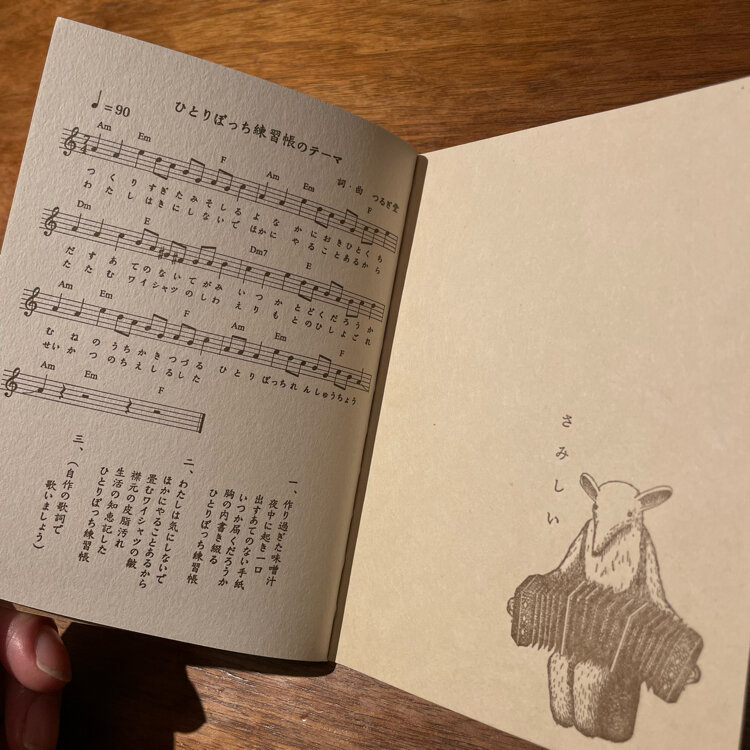 ♩=90
ひとりぼっち練習帳のテーマ
詞・曲 つるぎ堂
Am Em F Am Em F
つくりすぎたみそしるよなかにおきひとくち
わたしはきにしないでほかにやることあるから
Dm E Dm7 E
だすあてのないてがみいつかとどくだろうか
たたむワイシャツのしわえりもとのひしよごれ
Am Em F Am Em F
むねのうちかきつづるひとりぼっちれんしゅうちょう
せいかつのちえしるした
Am Em F
一、作り過ぎた味噌汁
夜中に起き一口
出すあてのない手紙
いつか届くだろうか
胸の内書き綴る
ひとりぼっち練習帳
二、わたしは気にしないで
ほかにやることあるから
畳むワイシャツの皺
襟元の皮脂汚れ
生活の知恵記した
ひとりぼっち練習帳
三、(自作の歌詞で
歌いましょう)
さみしい